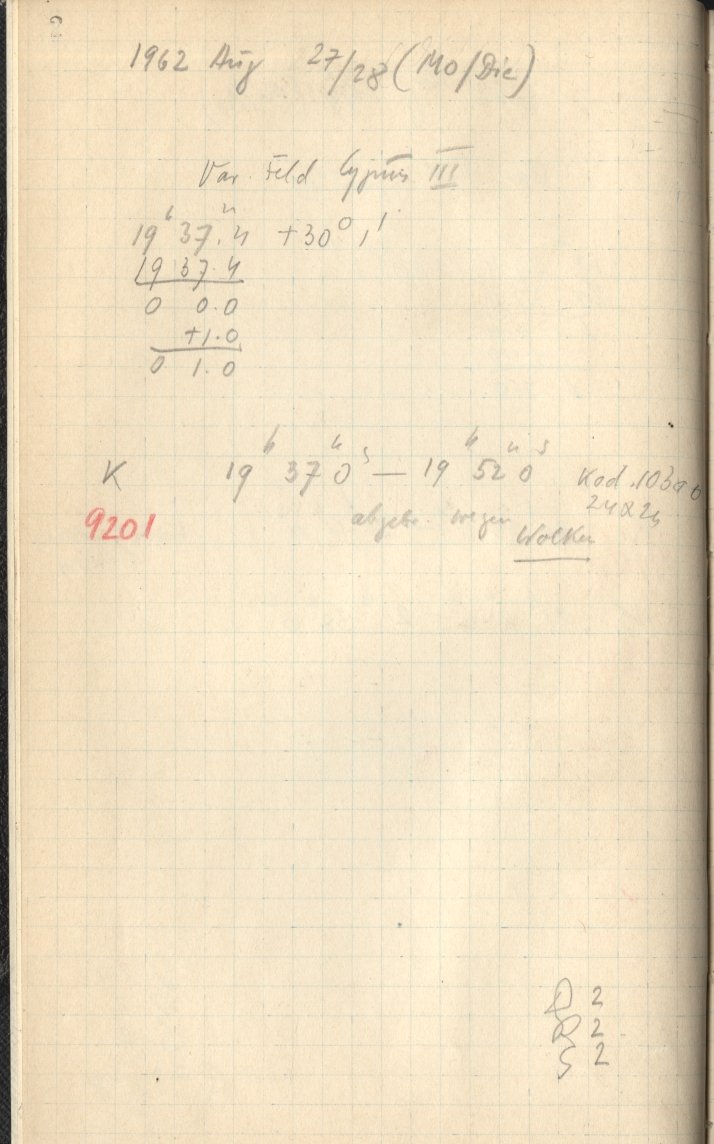 1962 Aug 27/28 (Mo/Die)
Var. Feld Cygnus III
19ʰ 37.ᵐ4 +30° 1'
19 37.4
0 0.0
+1.0
0 1.0
K 19ʰ 37ᵐ 0ˢ — 19ʰ 52ᵐ 0ˢ Kod. 103a0
24x24
9201 abgebr. wegen Wolken
D 2
R 2
S 2